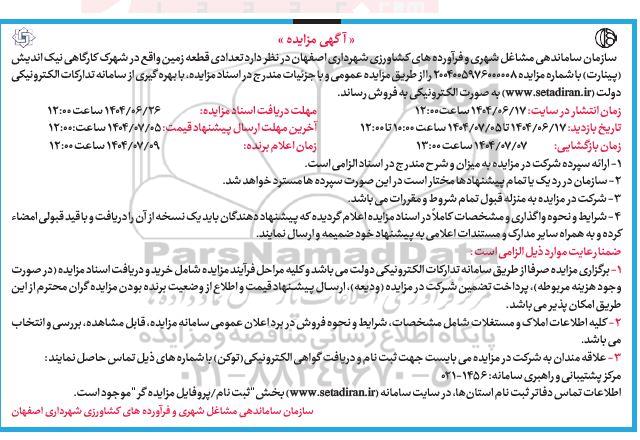 « آگهی مزایده »
سازمان ساماندهی مشاغل شهری و فرآورده های کشاورزی شهرداری اصفهان در نظر دارد تعدادی قطعه زمین واقع در شهرک کارگاهی نیک اندیش
(پینارت) با شماره مزایده ۲۰۰۴۰۰۵۹۷۶۰۰۰۰۰۸ را از طریق مزایده عمومی و با جزئیات مندرج در اسناد مزایده، با بهره گیری از سامانه تدارکات الکترونیکی
دولت (www.setadiran.ir) به صورت الکترونیکی به فروش رساند.
زمان انتشار در سایت: ۱۴۰۴/۰۶/۱۷ ساعت ۱۲:۰۰ مهلت دریافت اسناد مزایده: ۱۴۰۴/۰۶/۲۶ ساعت ۱۲:۰۰
تاریخ بازدید: ۱۴۰۴/۰۶/۱۷ تا ۱۴۰۴/۰۷/۰۵ ساعت ۱۰:۰۰ تا ۱۲:۰۰ آخرین مهلت ارسال پیشنهاد قیمت: ۱۴۰۴/۰۷/۰۵ ساعت: ۱۲:۰۰
زمان بازگشایی: ۱۴۰۴/۰۷/۰۷ ساعت ۱۳:۰۰ زمان اعلام برنده: ۱۴۰۴/۰۷/۰۹ ساعت ۱۲:۰۰
۱- ارائه سپرده شرکت در مزایده به میزان و شرح مندرج در اسناد الزامی است.
۲- سازمان در رد یک یا تمام پیشنهادها مختار است در این صورت سپرده ها مسترد خواهد شد.
۳- شرکت در مزایده به منزله قبول تمام شروط و مقررات می باشد.
۴- شرایط و نحوه واگذاری و مشخصات کاملاً در اسناد مزایده اعلام گردیده که پیشنهاد دهندگان باید یک نسخه از آن را دریافت و با قید قبولی امضاء
کرده و به همراه سایر مدارک و مستندات اعلامی به پیشنهاد خود ضمیمه و ارسال نمایند.
ضمنا رعایت موارد ذیل الزامی است :
۱- برگزاری مزایده صرفا از طریق سامانه تدارکات الکترونیکی دولت می باشد و کلیه مراحل فرآیند مزایده شامل خرید و دریافت اسناد مزایده (در صورت
وجود هزینه مربوطه)، پرداخت تضمین شرکت در مزایده (ودیعه)، ارسال پیشنهاد قیمت و اطلاع از وضعیت برنده بودن مزایده گران محترم از این
طریق امکان پذیر می باشد.
۲- کلیه اطلاعات املاک و مستغلات شامل مشخصات، شرایط و نحوه فروش در برد اعلان عمومی سامانه مزایده، قابل مشاهده، بررسی و انتخاب
می باشد.
۳- علاقه مندان به شرکت در مزایده می بایست جهت ثبت نام و دریافت گواهی الکترونیکی (توکن) با شماره های ذیل تماس حاصل نمایند :
مرکز پشتیبانی و راهبری سامانه: ۱۴۵۶-۰۲۱
اطلاعات تماس دفاتر ثبت نام استان‌ها، در سایت سامانه (www.setadiran.ir) بخش "ثبت نام/پروفایل مزایده گر" موجود است.
سازمان ساماندهی مشاغل شهری و فرآورده های کشاورزی شهرداری اصفهان
ParsNamadData
پایگاه اطلاع رسانی مناقصه و مزایده